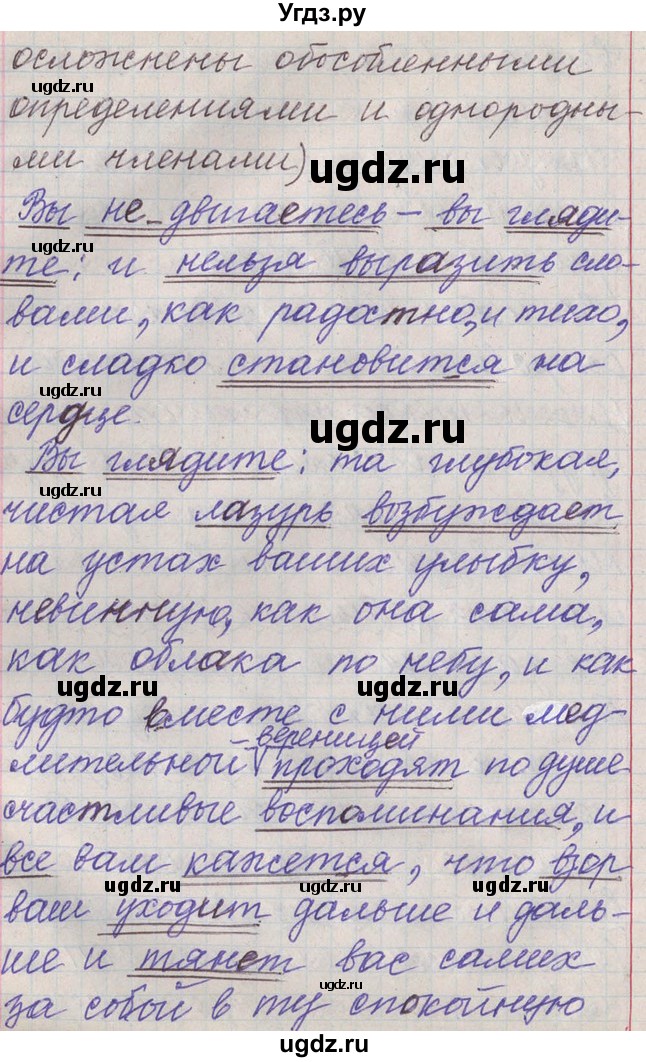 Угдз.ру
осложнены обособленными
ugdz.ru
определениями и однородны-
ми членами)
ugdz.ru
Вы не двигаетесь – вы гляди-
те: и нельзя выразить сло-
вами, как радостно, и тихо,
и сладко становится на
ugdz.ru
сердце.
ugdz.ru
Вы глядите: та глубокая,
чистая лазурь возбуждает
на устах ваших улыбку,
ugdz.ru
невинную, как она сама,
как облака по небу, и как
ugdz.ru
ugdz.ru
будто вместе с ними мед-
вереницей
лительной проходят по душе
счастливые воспоминания, и
все вам кажется, что взор
ugdz.ru
ugdz.ru
ваш уходит дальше и даль-
ше и тянет вас самих
за собой в ту спокойную
ugdz.ru